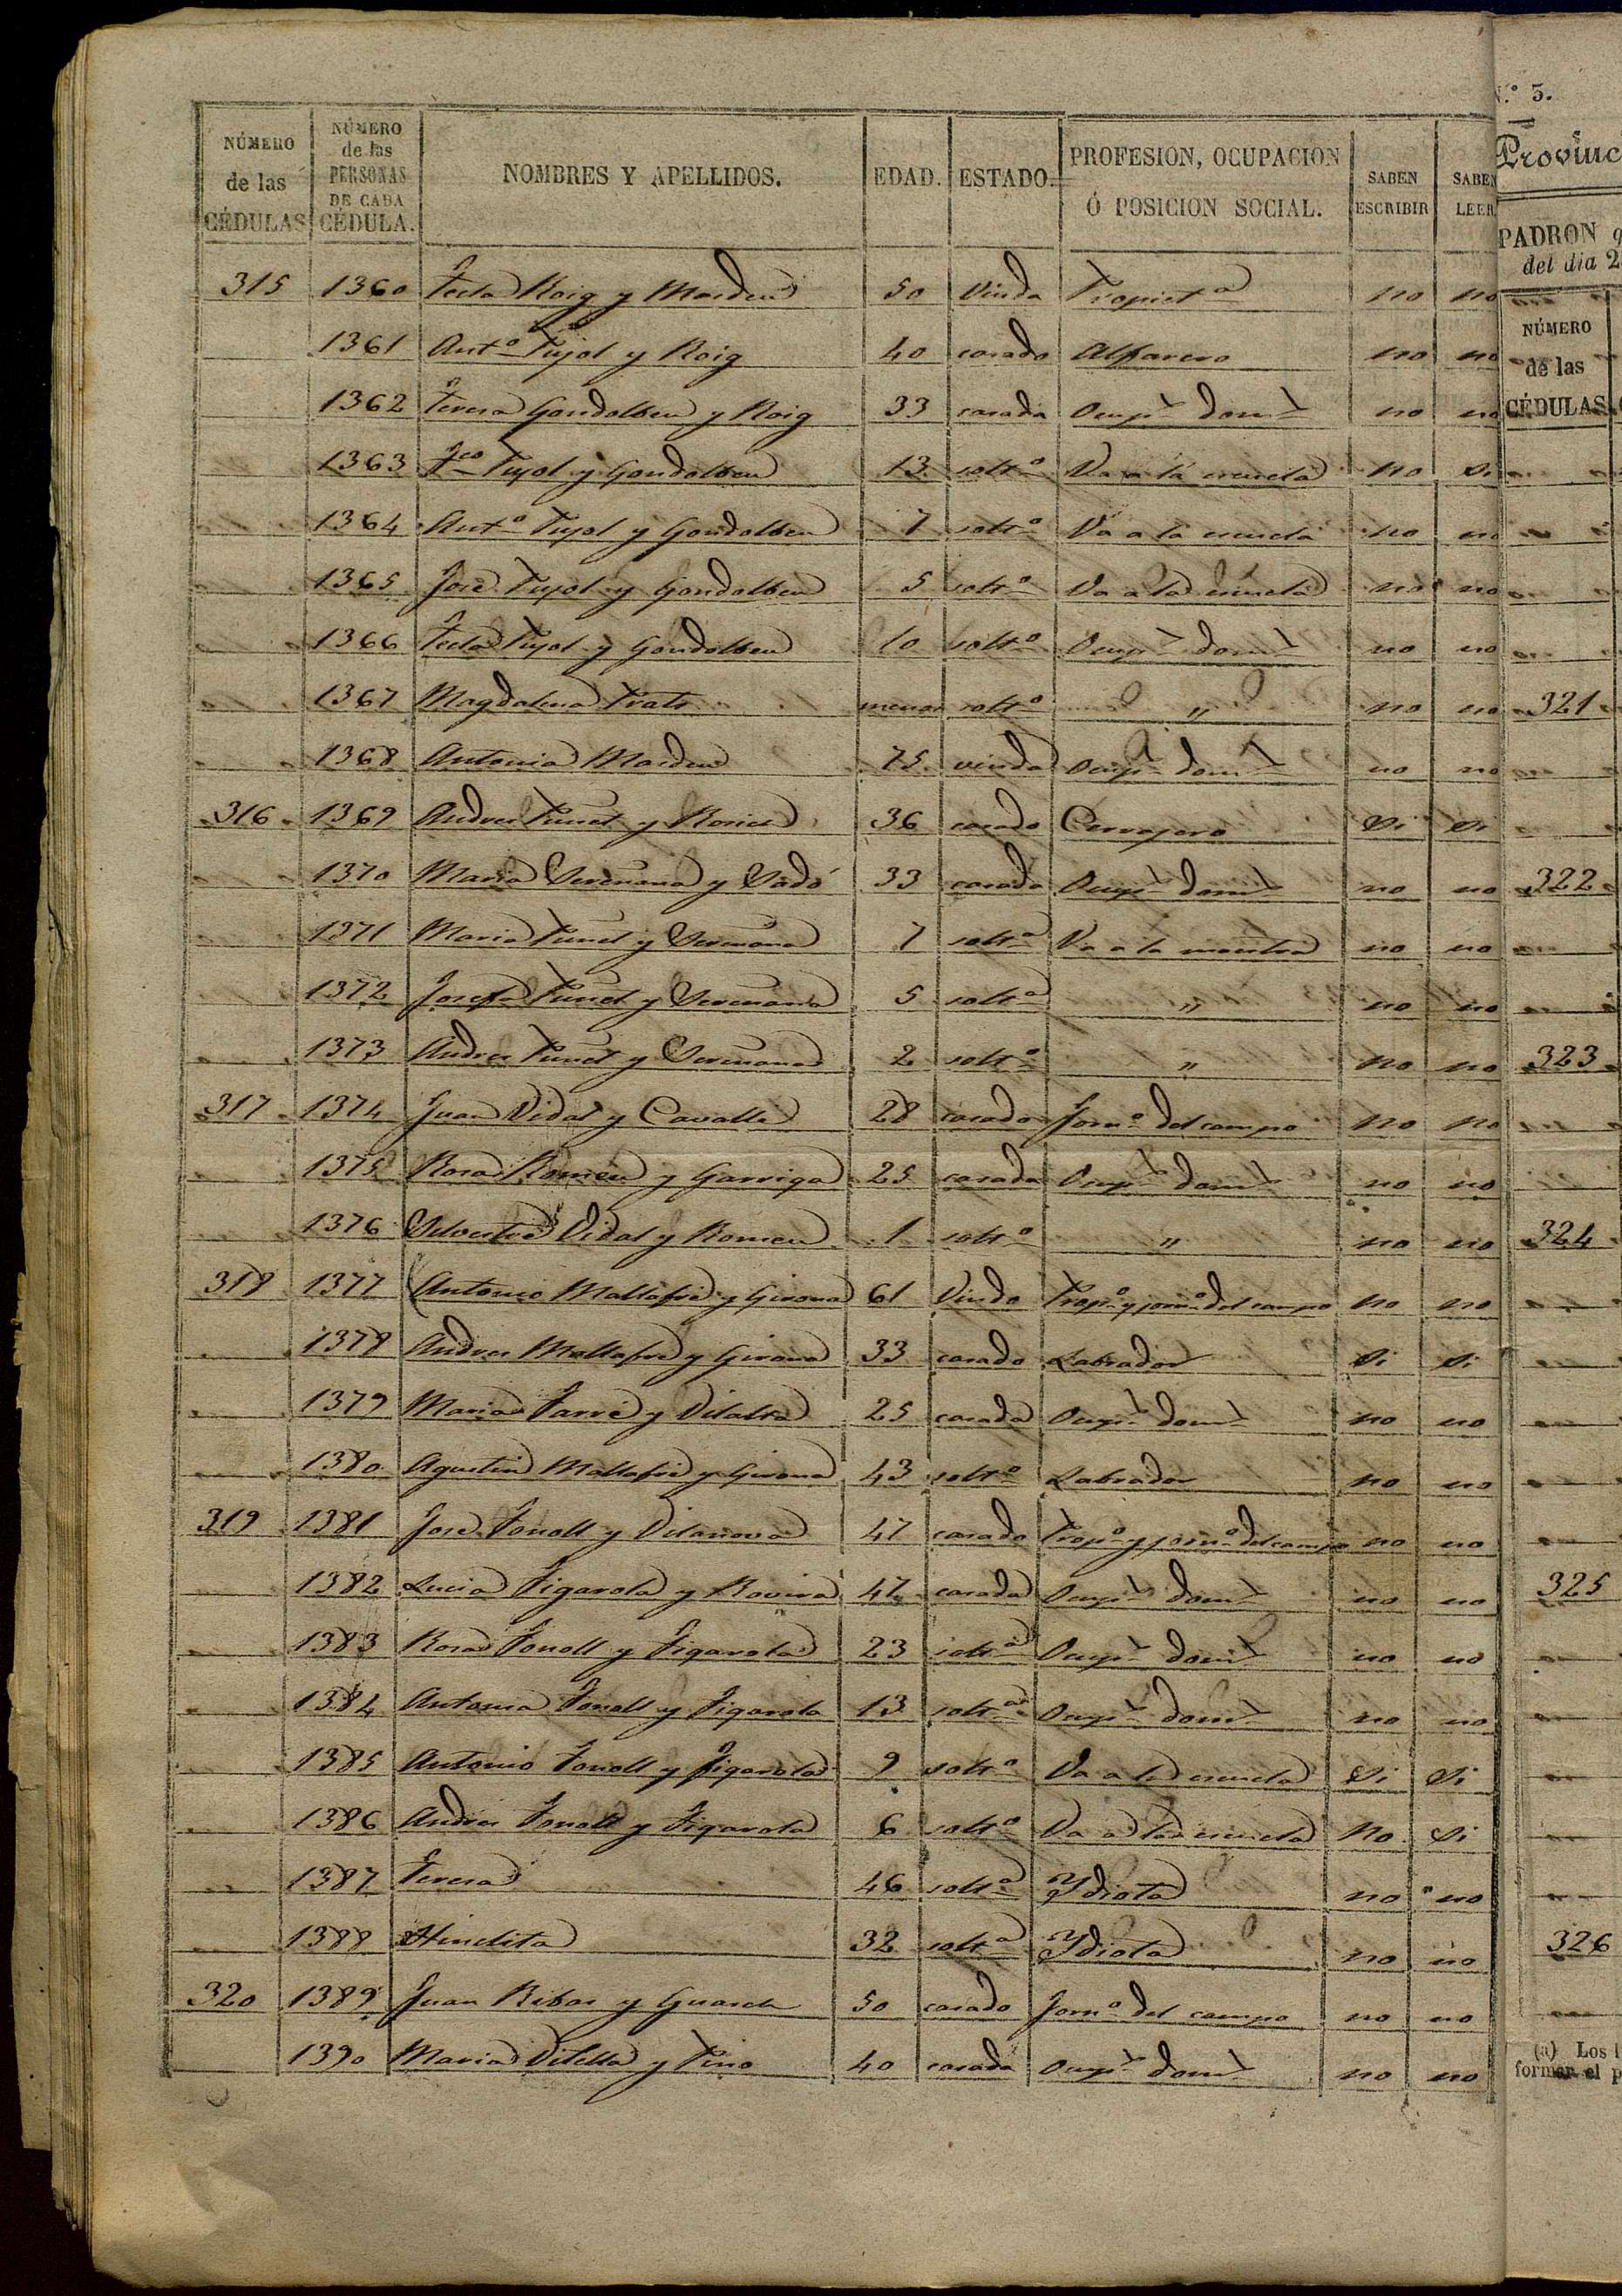 NÚMERO de las CÉDULAS | NÚMERO de las PERSONAS DE CADA CÉDULA. | NOMBRES Y APELLIDOS. | EDAD. | ESTADO. | PROFESION, OCUPACION Ó POSICION SOCIAL. | SABEN ESCRIBIR | SABEN LEER
315 1360 Tecla Roig y 50 Viuda Propietª no no
1361 Antº Pujol y Roig 40 casado Alfarero no no
1362 Teresa Gondolbeu y Roig 33 casada Ocupⁿ domᵗ no no
1363 Fco Pujol y Gondolbeu 13 soltº Va a la escuela no si
1364 Antº Pujol y Gondolbeu 7 soltº Va a la escuela no no
1365 José Pujol y Gondolbeu 5 soltº Va a la escuela no no
1366 Tecla Pujol y Gondolbeu 10 soltª Ocupⁿ domᵗ no no
1367 Magdalena Prats menor soltª " no no
1368 Antonia 75 viuda Ocupⁿ domᵗ no no
316 1369 Andres Punet y 36 casado Cerrajero Si Si
1370 Maria Sermana y Sadó 33 casada Ocupⁿ domᵗ no no
1371 Maria Punet y Sermana 7 soltª Va a la maestra no no
1372 Josefa Punet y Sermana 5 soltª " no no
1373 Andres Punet y Sermana 2 soltº " no no
317 1374 Juan Vidal y Cavallé 28 casado Jornº del campo no no
1375 Rosa Romeu y Garriga 25 casada Ocupⁿ domᵗ no no
1376 Silvestre Vidal y Romeu 1 soltº " no no
318 1377 Antonio Mallafré y Girona 61 Viudo Propº y jornº del campo no no
1378 Andres Mallafré y Girona 33 casado Labrador Si Si
1379 Maria Farré y Vilalta 25 casada Ocupⁿ domᵗ no no
1380 Agustin Mallafré y Girona 43 soltº Labrador no no
319 1381 José Fonoll y Vilanova 47 casado Propº y jornº del campo no no
1382 Lucia Figarola y Rovira 47 casada Ocupⁿ domᵗ no no
1383 Rosa Fonoll y Figarola 23 soltª Ocupⁿ domᵗ no no
1384 Antonia Fonoll y Figarola 13 soltª Ocupⁿ domᵗ no no
1385 Antonio Fonoll y Figarola 9 soltº Va a la escuela Si Si
1386 Andres Fonoll y Figarola 6 soltº Va a la escuela No Si
1387 Teresa 46 soltª Ydiota no no
1388 32 soltª Ydiota no no
320 1389 Juan Ribas y Guasch 50 casado Jornº del campo no no
1390 Maria Vilella y Pino 40 casada Ocupⁿ domᵗ no no
N.º 3.
Provinc
PADRON
del dia 2
NÚMERO
de las
CÉDULAS
321
322
323
324
325
326
(a) Los
formar el p